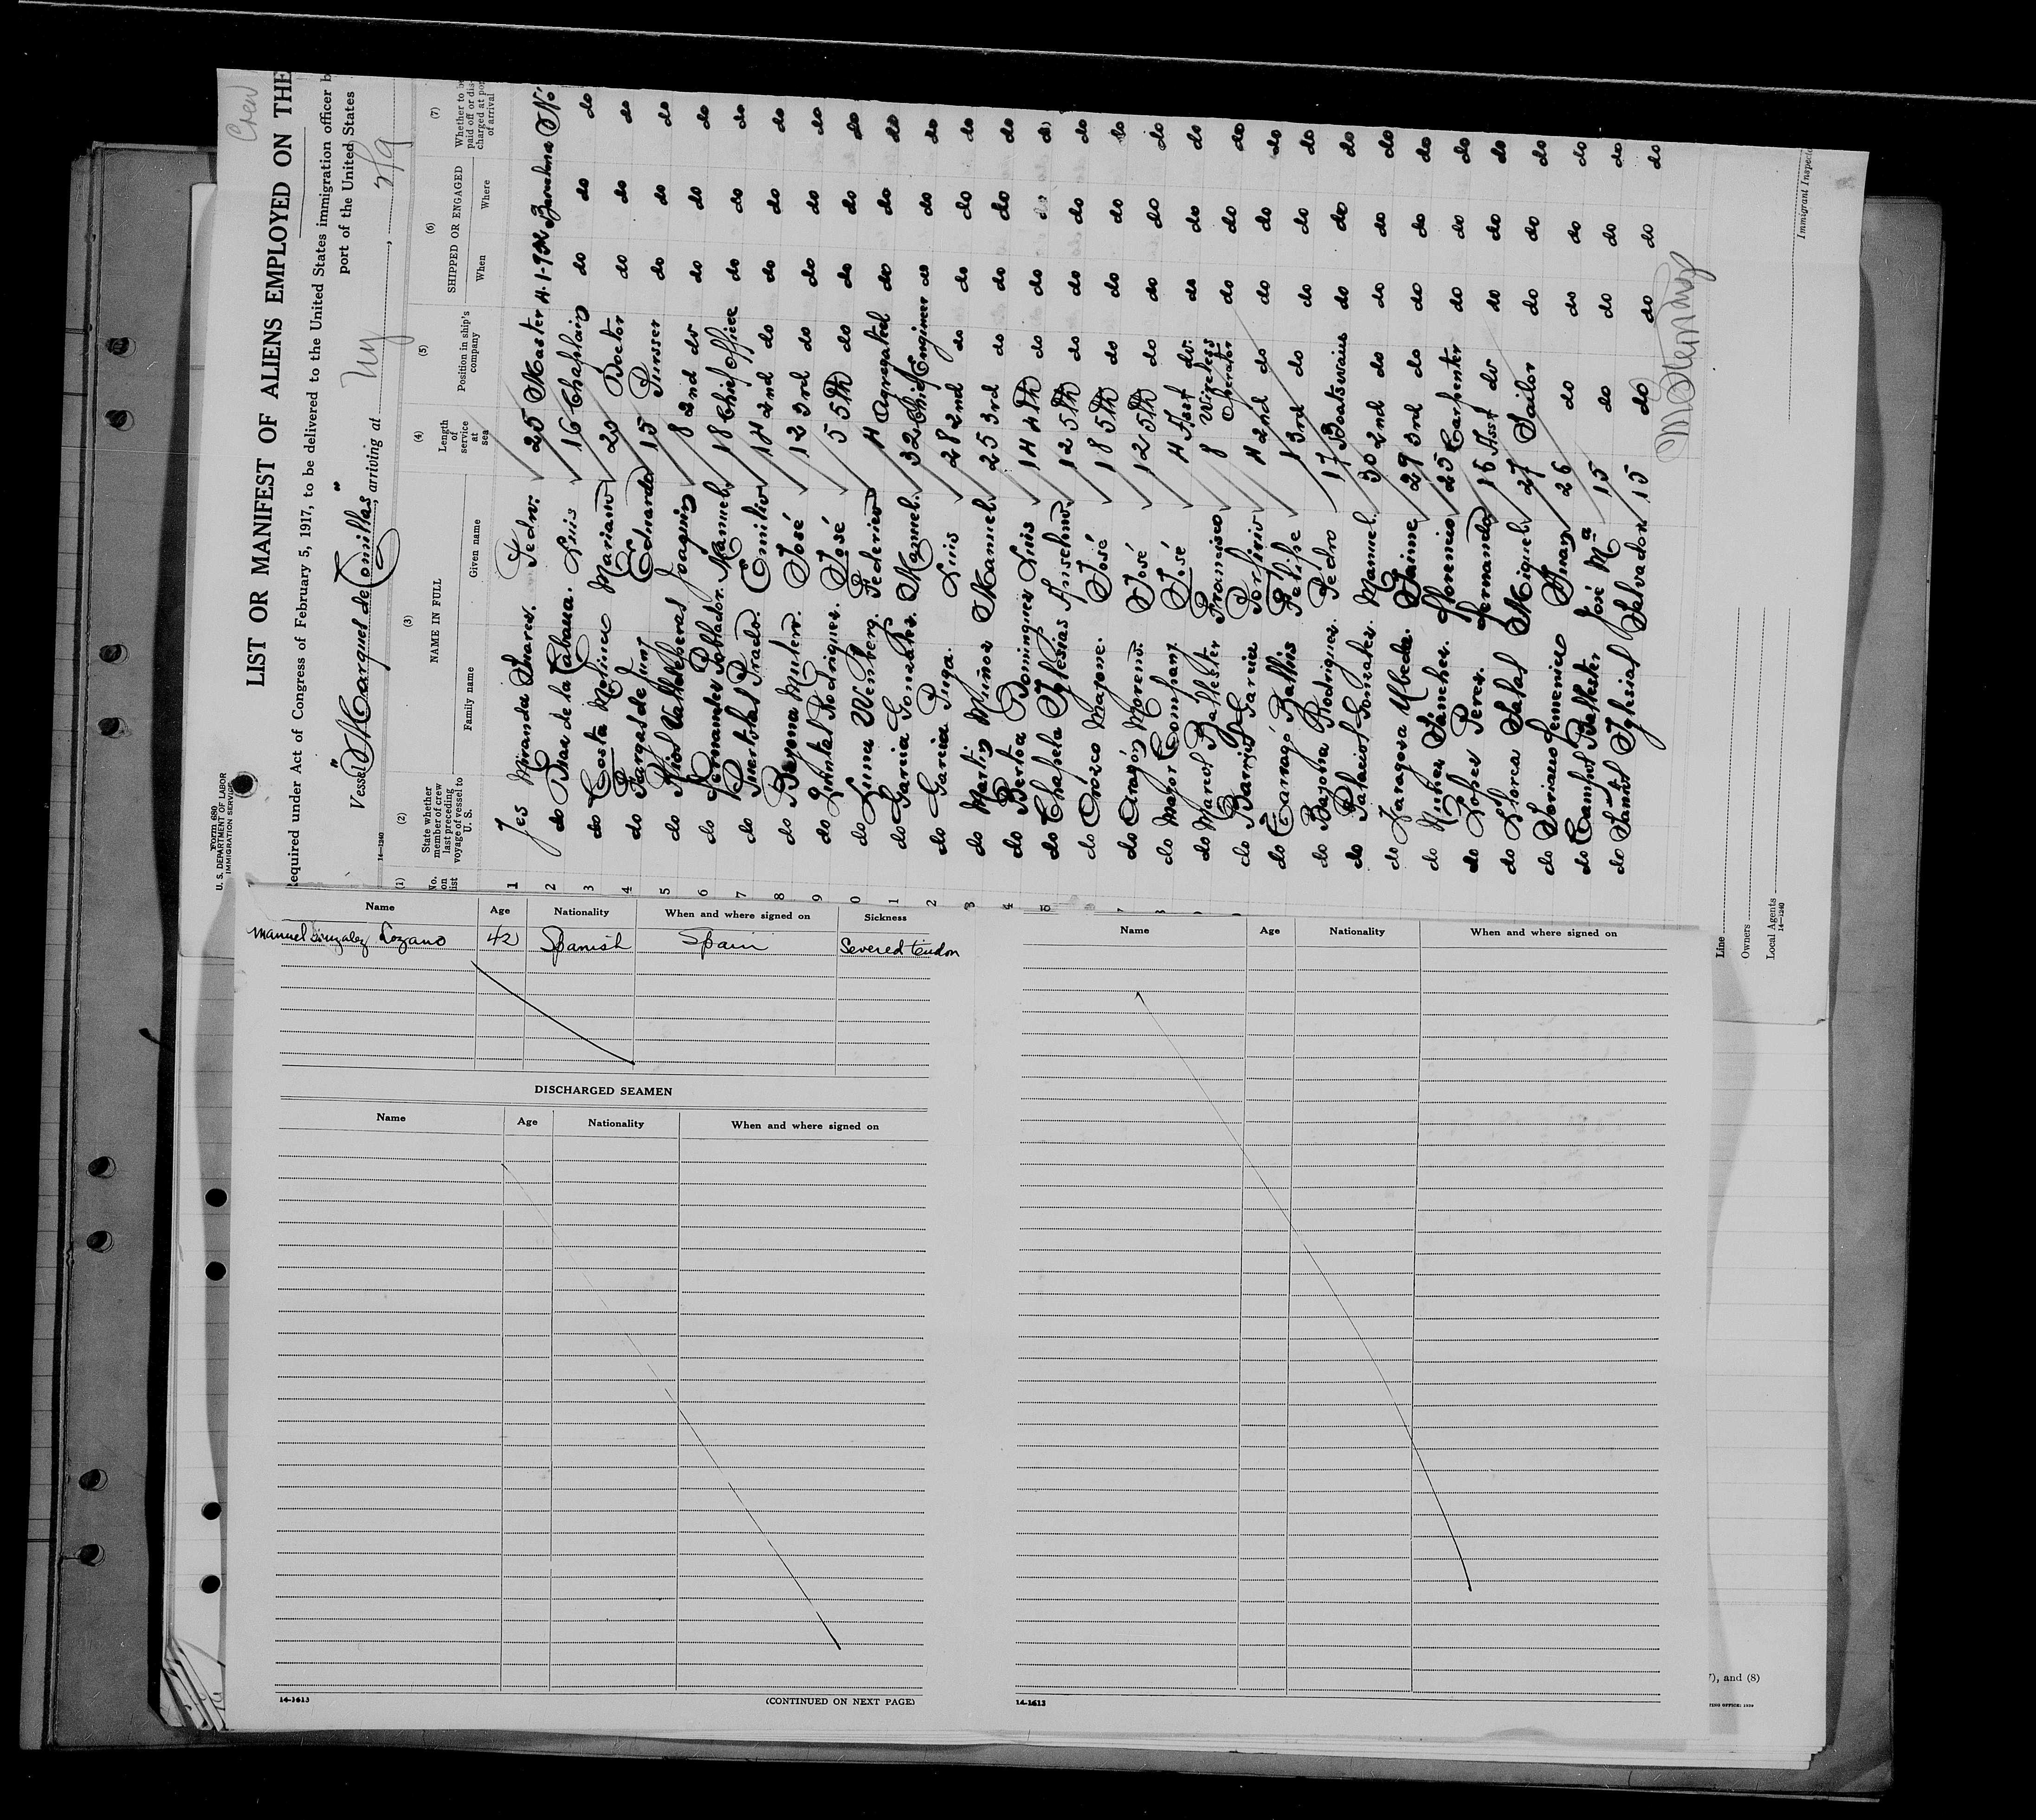 Crew
Form 680
U. S. DEPARTMENT OF LABOR
IMMIGRATION SERVICE
LIST OR MANIFEST OF ALIENS EMPLOYED ON THE
equired under Act of Congress of February 5, 1917, to be delivered to the United States immigration officer b
port of the United States
Vessel "Marques de Comillas", arriving at Ny , 2/9
14-1240
(1) (2) (3) (4) (5) (6) (7)
No. on list State whether member of crew last preceding voyage of vessel to U. S. NAME IN FULL Family name Given name Length of service at sea Position in ship's company SHIPPED OR ENGAGED When Where Whether to b paid off or dis charged at po of arrival
1 Yes Miranda Suarez. Pedro. 25 Master Barcelona No
2 do Diaz de la Luis 16 Chaplain do do do
3 do Costa Molinez Mariano 20 Doctor do do do
4 do Eduardo 15 Pursser do do do
5 do Rios Joaquin 8 2nd do do do do
6 do Fernandez Poblador. Manuel. 18 Chief Officer do do do
7 do Prado. Emilio 14 2nd do do do do
8 do Bayona José 12 3rd do do do do
9 do Quintal Rodriguez. José 5 5th do do do do
0 do Luna Wenberg. Federico 4 Agregated do do do
1 do Garcia Gonzalez. Manuel. 32 Chief Engineer do do do
2 do Garcia Puga. Luis 28 2nd do do do do
3 do Martin Muñoz Manuel 25 3rd do do do do
4 do Barba Dominguez Luis 14 4th do do do do
5 do Chapela Iglesias Anselmo 12 5th do do do do
do Orozco José 18 5th do do do do
7 do Aragón Moreno José 12 5th do do do do
8 do Mayor Company José 4 Asst do. do do do
do Marcol Ballester Francisco 8 Wireless Operator do do do
do Garcia Porfirio 4 2nd do do do do
do Tarragó Felipe 1 3rd do do do do
do Bayona Rodriguez. Pedro 17 Boatswain do do do
do Palacios Gonzalez. Manuel. 30 2nd do do do do
do Zaragoza Ubeda. Jaime 29 3rd do do do do
do Nuñez Sanchez. Florencio 25 Carpenter do do do
do Lopez Perez. Fernando 15 Asst do do do do
do Llorca Miguel 27 Sailor do do do
do Soriano Juan 26 do do do do
do Ballester José Mª 15 do do do do
do Salvador 15 do do do do
Immigrant Inspec
Line
Owners
Local Agents
14-1240
Name Age Nationality When and where signed on Sickness
Manuel Gonzalez Lozano 42 Spanish Spain Severed tendon
DISCHARGED SEAMEN
Name Age Nationality When and where signed on
14-1613 (CONTINUED ON NEXT PAGE)
Name Age Nationality When and where signed on
14-1613
), and (8)